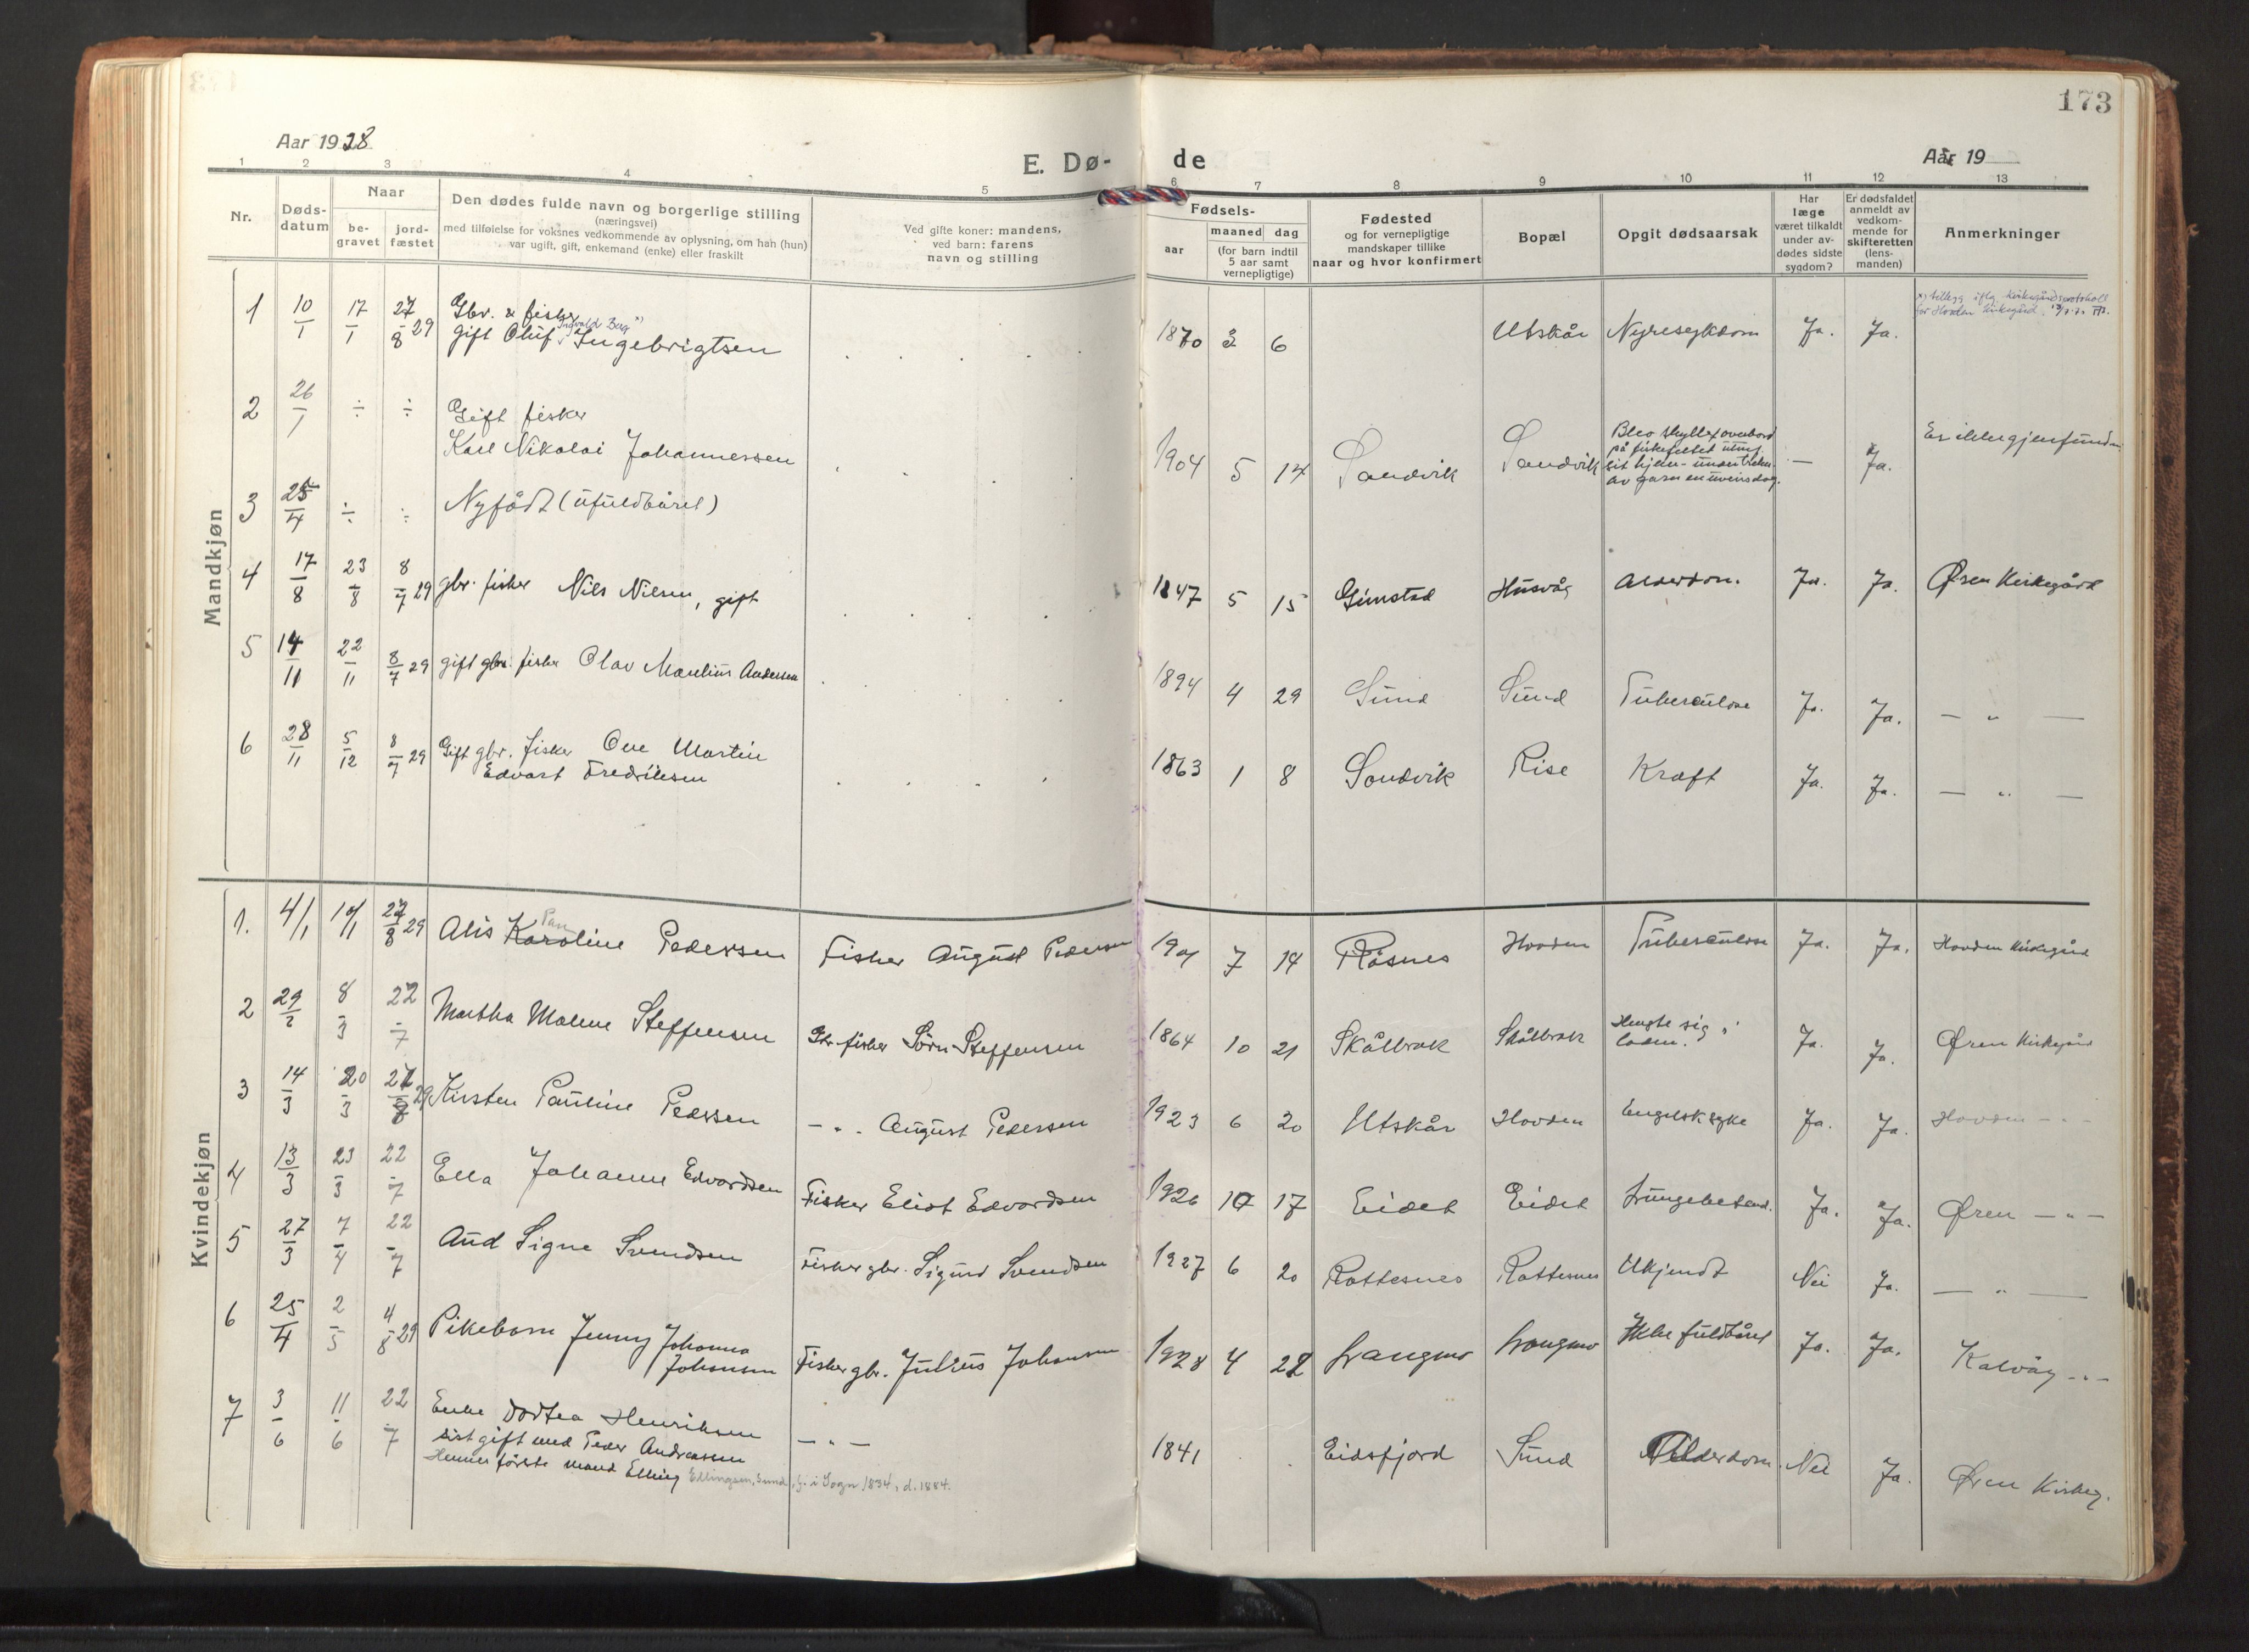 173
Aar 1928
E. Dø-
de
Aar 19
1 2 3 4 5 6 7 8 9 10 11 12 13
Nr.
Døds-
datum
Naar
be-
gravet
jord-
fæstet
Den dødes fulde navn og borgerlige stilling
(næringsvei)
med tilføielse for voksnes vedkommende av oplysning, om han (hun)
var ugift, gift, enkemand (enke) eller fraskilt
Ved gifte koner: mandens,
ved barn: farens
navn og stilling
Fødsels-
aar
maaned dag
(for barn indtil
5 aar samt
vernepligtige)
Fødested
og for vernepligtige
mandskaper tillike
naar og hvor konfirmert
Bopæl
Opgit dødsaarsak
Har
læge
været tilkaldt
under av-
dødes sidste
sygdom?
Er dødsfaldet
anmeldt av
vedkom-
mende for
skifteretten
(lens-
manden)
Anmerkninger
Mandkjøn
1 10/1 17/1 27/8 29 Gbr. & fisker
gift Oluf Ingvald Bag x) Ingebrigtsen 1870 3 6 Utskår Nyresykdom Ja. Ja.
x) tillegg iflg. kirkegårdsprotokoll
for Hovden kirkegård
2 26/1 ÷ ÷ Gift fisker
Karl Nikolai Johannessen 1904 5 14 Sandvik Sandvik — Ja.
Blev skyllet overbord
på fiskefeltet
av garn
Er ikke gjenfunden
3 25/4 ÷ ÷ Nyfødt (ufuldbåret)
4 17/8 23/8 8/7 29 gbr. fisker Nils Nilsen, gift 1847 5 15 Gimstad Husvåg Alderdom. Ja. Ja. Øren Kirkegård
5 14/11 22/11 8/7 29 gift gbr. fisker Olav Maulius Andersen 1894 4 29 Sund Sund Tuberculose Ja. Ja. — " —
6 28/11 5/12 8/7 29 Gift gbr. fisker Ove Martin
Edvart Fredriksen 1863 1 8 Sandvik Rise Kræft Ja. Ja. — " —
Kvindekjøn
1. 4/1 10/1 27/8 29 Alis Karoline Pedersen Fisker August Pedersen 1901 7 14 Råsnes Hovden Tuberculose Ja. Ja. Hovden Kirkegård
2 29/2 8/3 22/7 Martha Malene Steffensen Gbr. fisker Sörn Steffensen 1864 10 21 Skålbrak Skålbrak Hengte sig i
laden. Ja. Ja. Øren Kirkegård
3 14/3 20/3 27/8 29 Kirsten Pauline Pedersen — " . August Pedersen 1923 6 20 Utskår Hovden Engelsk syke Ja. Ja. Hovden - " -
4 13/3 23/3 22/7 Ella Johanne Edvardsen Fisker Eliot Edvardsen 1926 10 17 Eidet Eidet Lungebetend. Ja. Ja. Øren — " —
5 27/3 7/4 22/7 Aud Signe Svendsen Fisker gbr. Sigurd Svendsen 1927 6 20 Rottesnes Rottesnes Ukjendt Nei Ja. — " —
6 25/4 2/5 4/8 29 Pikebarn Jenny Johanna
Johansen Fisker gbr. Julius Johansen 1928 4 22 Langmo Langmo Ikke fuldbåret Ja. Ja. Kalvåg - " -
7 3/6 11/6 22/7 Enke Dortea Henriksen — " —
sist gift med Peder Andreassen
Hennes første mand Elling Ellingsen, Sund, f. i Sogn 1834, d. 1884.
1841 Eidsfjord Sund Alderdom Nei Ja. Øren Kirkeg.